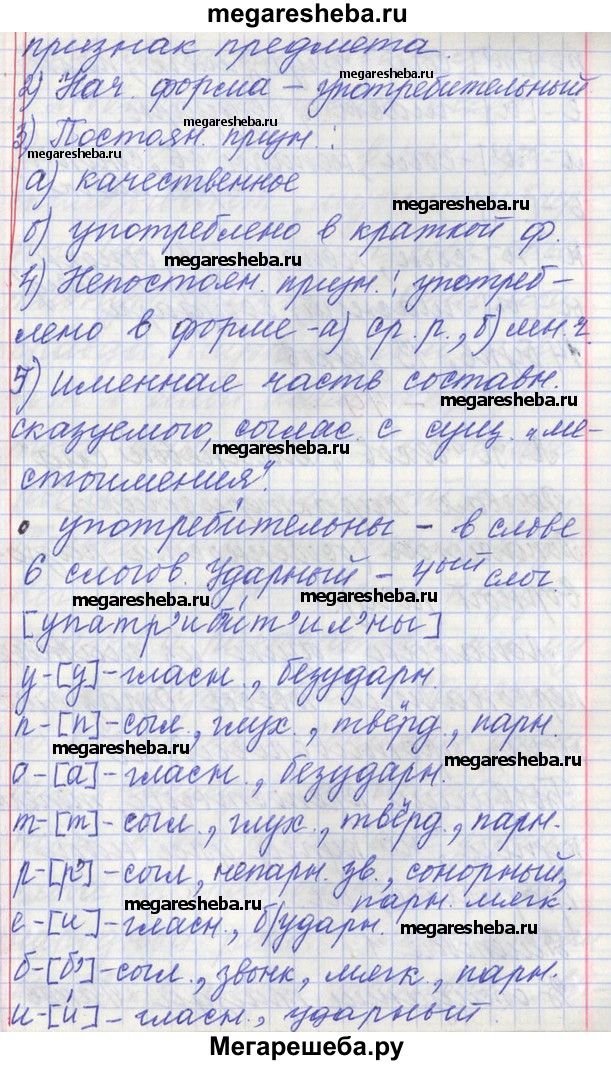 megaresheba.ru
признак предмета.
megaresheba.ru
2) Нач. форма – употребительный
megaresheba.ru
3) Постоян. призн.:
megaresheba.ru
а) качественное
megaresheba.ru
б) употреблено в краткой ф.
megaresheba.ru
4) Непостоян. призн.: употреб-
лено в форме -а) ср. р., б) мн. ч.
5) именная часть составн.
megaresheba.ru
сказуемого, соглас. с сущ. „ме-
megaresheba.ru
стоимения".
употреби́тельны – в слове
6 слогов. Ударный – 4ый слог.
megaresheba.ru
megaresheba.ru
[упатр'иби́т'ил'ны]
у-[у]-гласн., безударн.
п-[п]-согл., глух., твёрд., парн.
megaresheba.ru
о-[а]-гласн., безударн.
megaresheba.ru
т-[т]-согл., глух., твёрд., парн.
р-[р']-согл, непарн. зв., сонорный,
парн. мягк.
megaresheba.ru
е-[и]-гласн., б/ударн.
megaresheba.ru
б-[б']-согл., звонк, мягк, парн.
и-[и́]-гласн., ударный.
Мегарешеба.ру